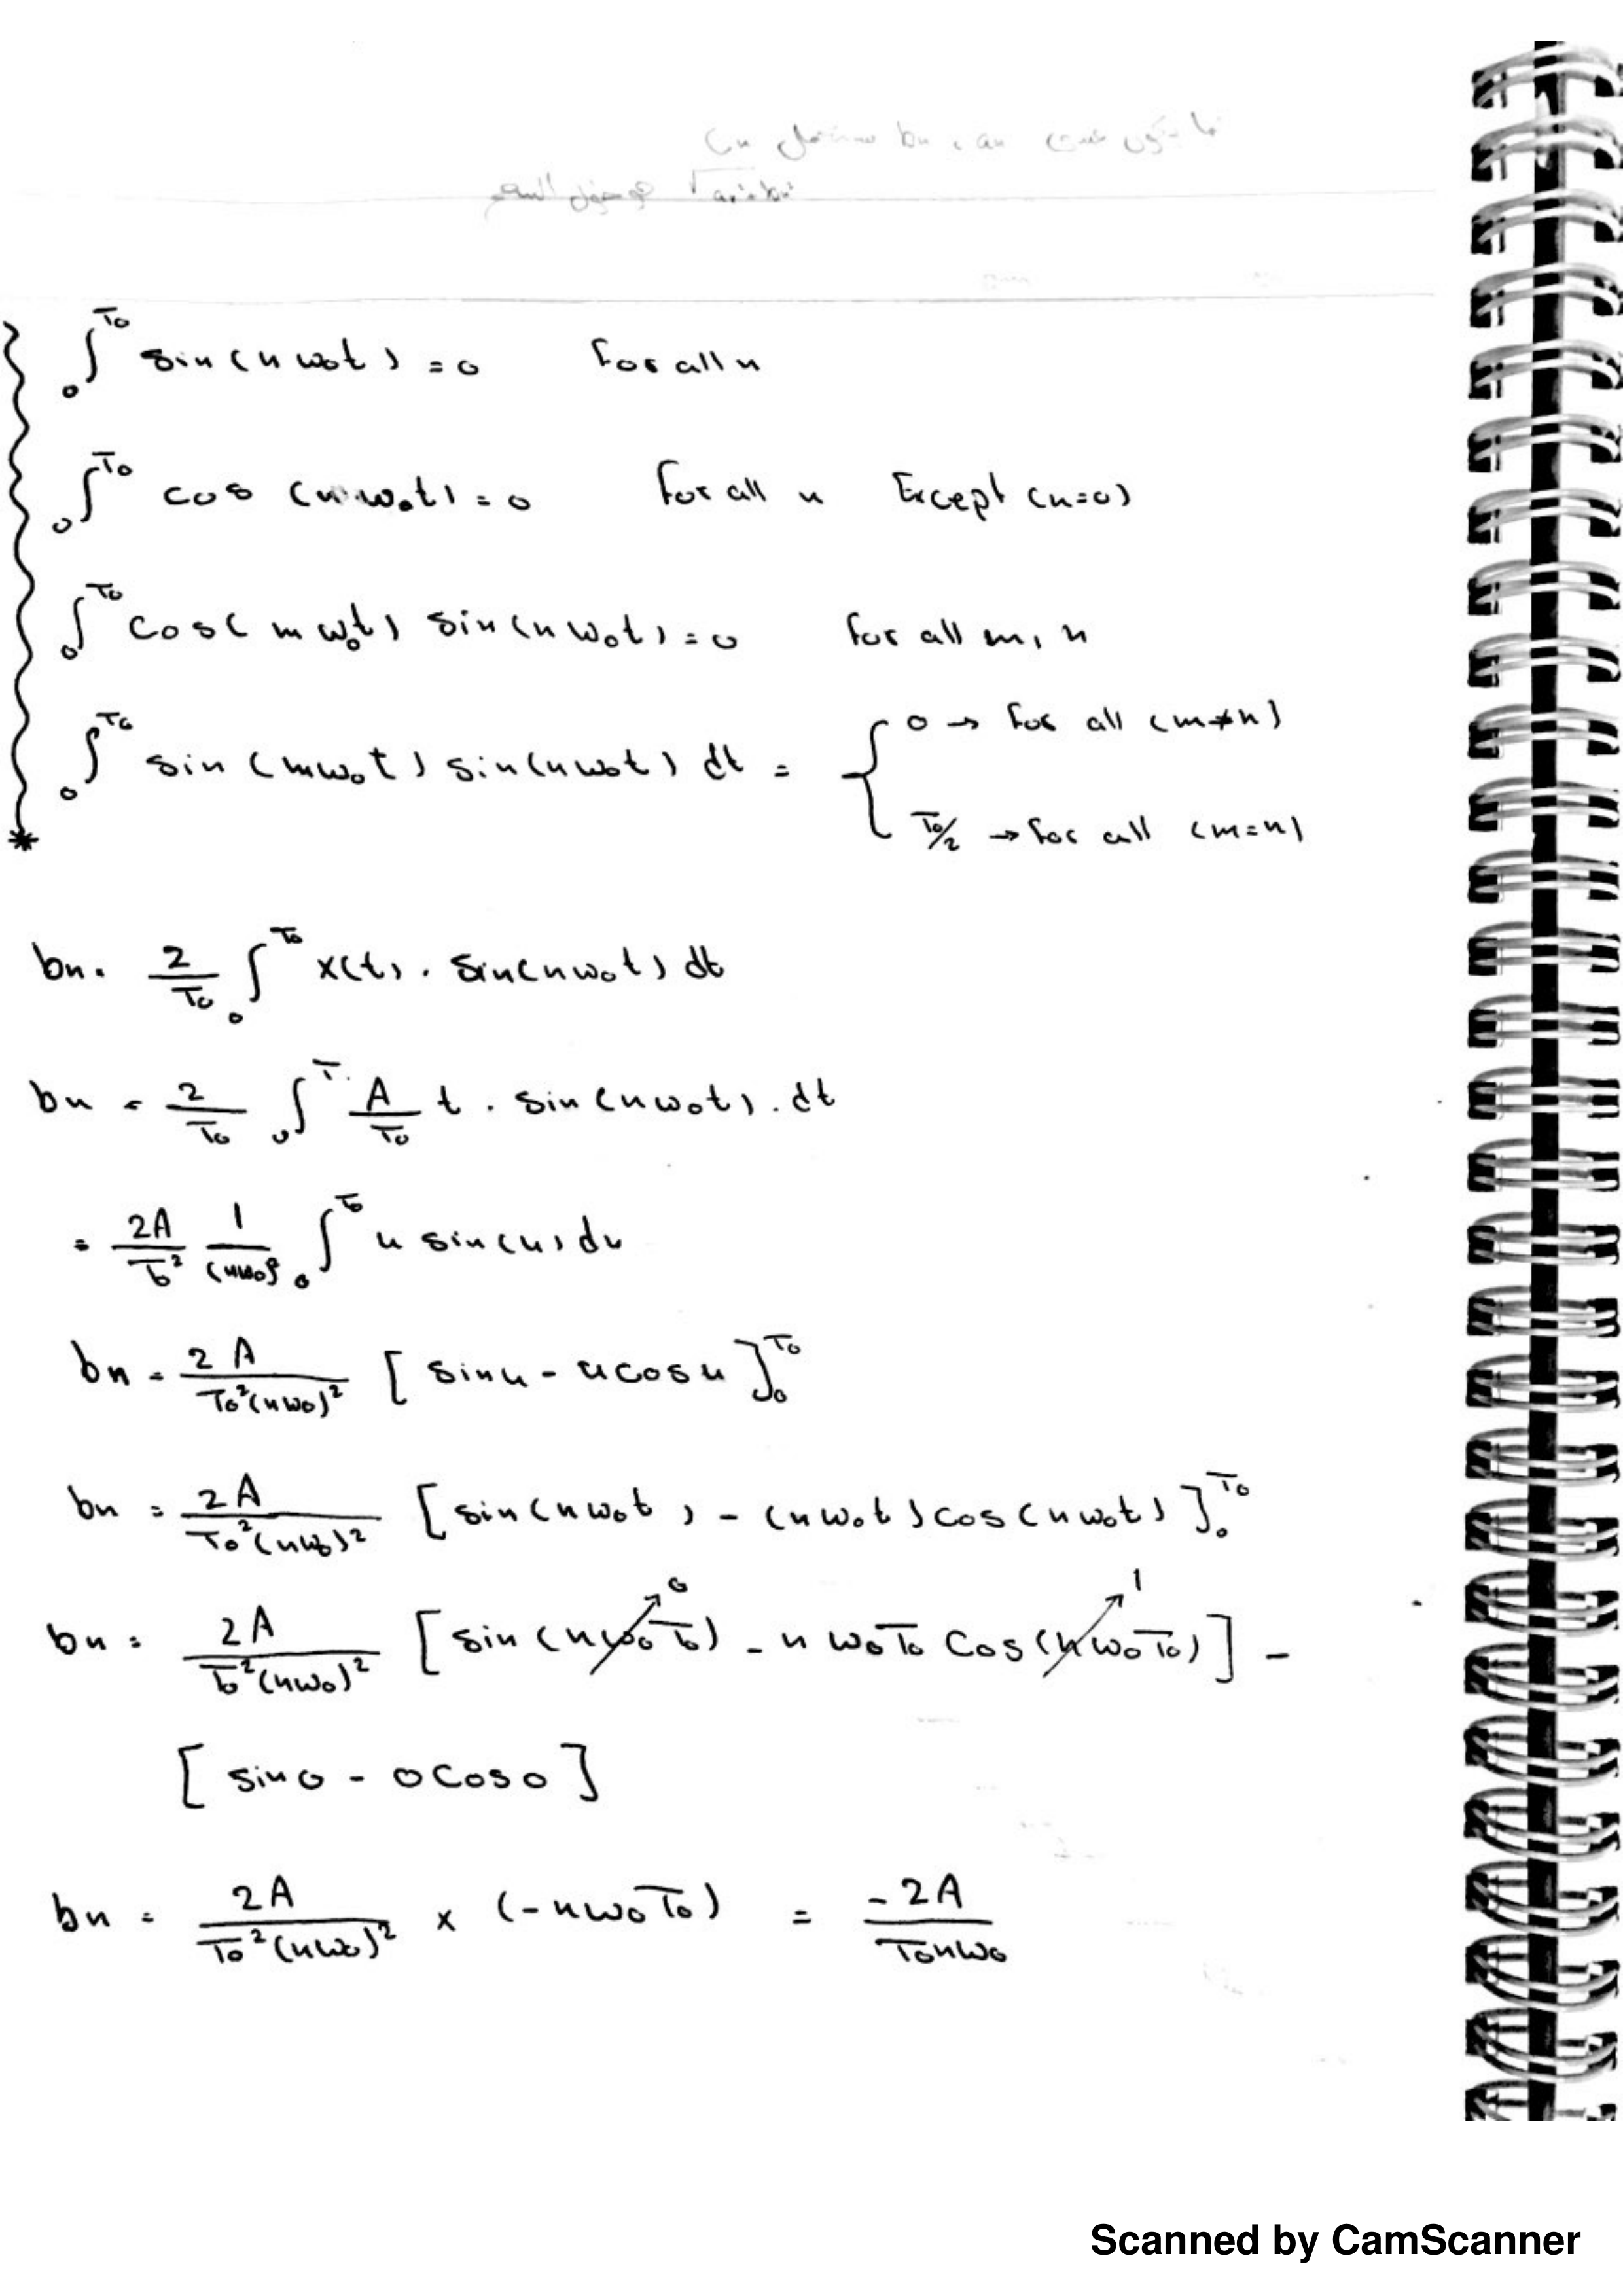 bn ، an
∫₀^T₀ sin(nω₀t) = 0 For all n
∫₀^T₀ cos(nω₀t) = 0 For all n Except (n=0)
∫₀^T₀ cos(mω₀t) sin(nω₀t) = 0 for all m, n
∫₀^T₀ sin(mω₀t) sin(nω₀t) dt = { 0 → for all (m≠n)
T₀/2 → for all (m=n)
bn = 2/T₀ ∫₀^T₀ x(t) . sin(nω₀t) dt
bn = 2/T₀ ∫₀^T₀ A/T₀ t . sin(nω₀t) . dt
= 2A/T₀² 1/(nω₀)² ∫₀^T₀ u sin(u) du
bn = 2A/T₀²(nω₀)² [sinu - ucosu]₀^T₀
bn = 2A/T₀²(nω₀)² [sin(nω₀t) - (nω₀t)cos(nω₀t)]₀^T₀
0 1
bn = 2A/T₀²(nω₀)² [sin(nω₀T₀) - nω₀T₀ Cos(nω₀T₀)] -
[sin0 - 0cos0]
bn = 2A/T₀²(nω₀)² × (-nω₀T₀) = -2A/T₀nω₀
Scanned by CamScanner